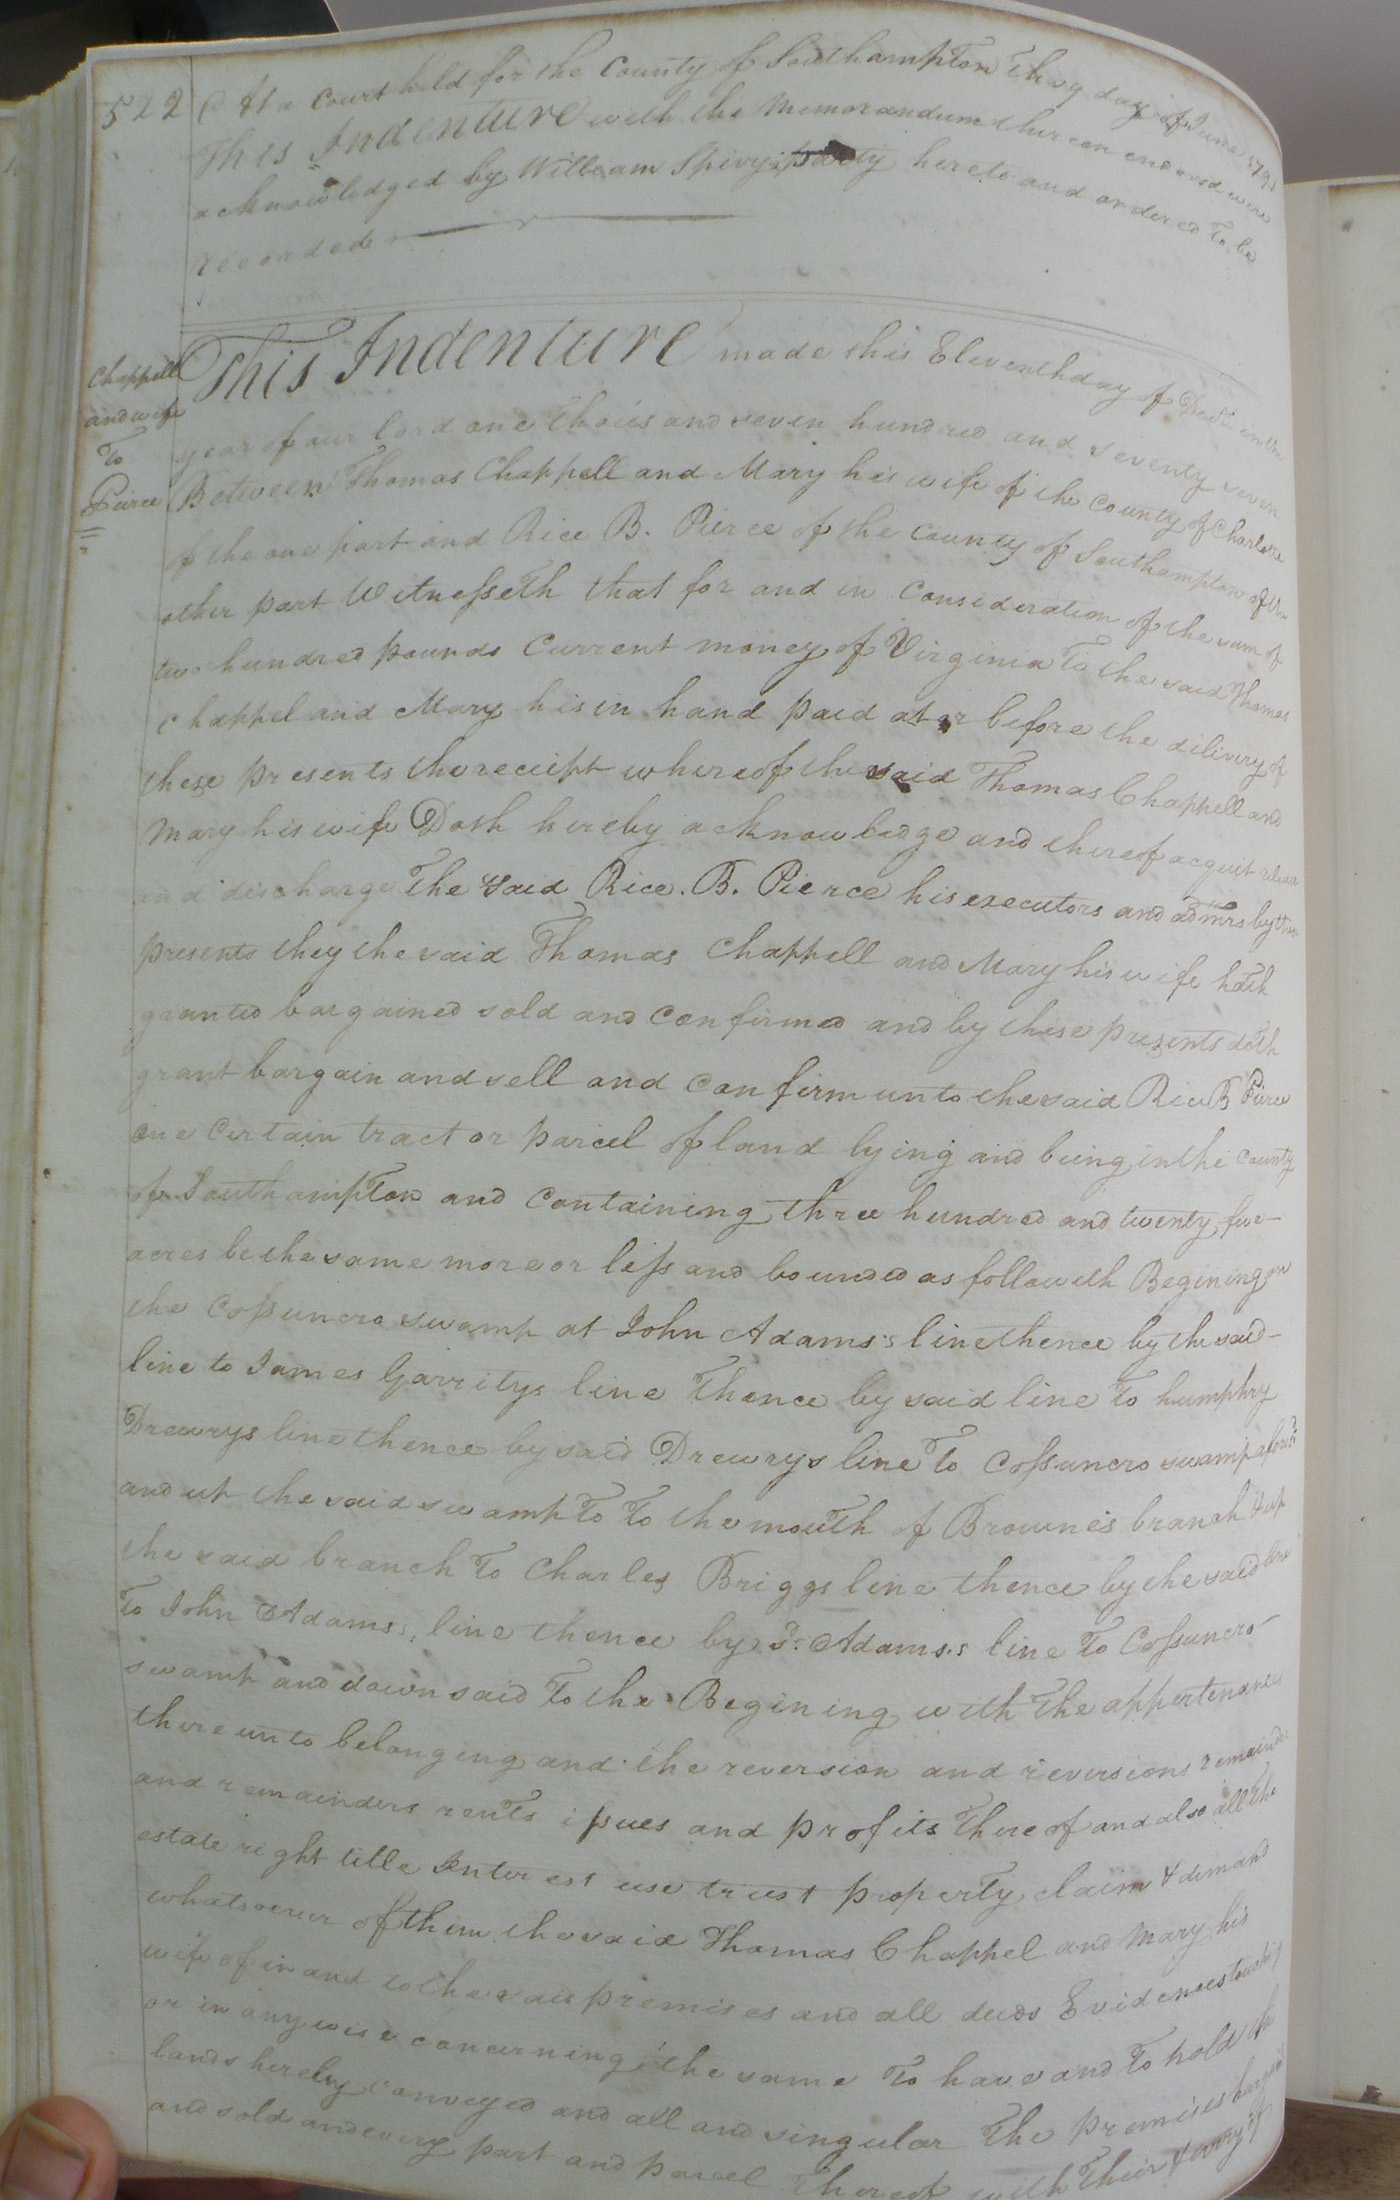 522
At a Court held for the County of Southampton the 9 day of June 1791
This Indenture with the Memorandum thereon endorsd were
acknowledged by William Spivy party hereto and ordered To be
recorded
Chappell
and wife
To
Peirce
This Indenture made this Eleventh day of Decr. in the
year of our lord one thousand seven hundred and seventy seven
Between Thomas Chappell and Mary his wife of the County of Charlotte
of the one part and Rice B. Pierce of the County of Southampton of the
other part Witnesseth that for and in Consideration of the sum of
two hundred pounds Current money of Virginia To the said Thomas
Chappel and Mary his in hand paid at or before the dilivery of
these presents the receipt whereof the said Thomas Chappell and
Mary his wife Doth hereby acknowledge and thereof acquit release
and discharge The said Rice. B. Pierce his executors and admrs by these
presents they the said Thomas Chappell and Mary his wife hath
granted bargained sold and confirmed and by these presents doth
grant bargain and sell and confirm unto the said Rice B Peirce
one Certain tract or parcel of land lying and being in the County
of Southampton and Containing three hundred and twenty five
acres be the same more or less and bounded as followeth Begining on
the Cossuncro swamp at John Adams's line thence by the said
line to James Garritys line Thence by said line To humphry
Drewrys line thence by said Drewrys line To Cossuncro swamp aforsd.
and up the said swamp To To the mouth of Browne's branch & up
the said branch To Charles Briggs line thence by the said line
To John Adams's line thence by Sd. Adams's line To Cossuncro
swamp and down said To the Begining with The appertenances
thereunto belonging and the reversion and reversions remainder
and remainders rents issues and profits Thereof and also all The
estate right title Interest use trust property claim & demand
whatsoever of them the said Thomas Chappel and Mary his
wife of in and to the said premises and all deeds Evidences touching
or in any wise concerning the same To have and To hold the
lands hereby conveyed and all and singular The premises bargaind
and sold and every part and parcel Thereof with Their & every of